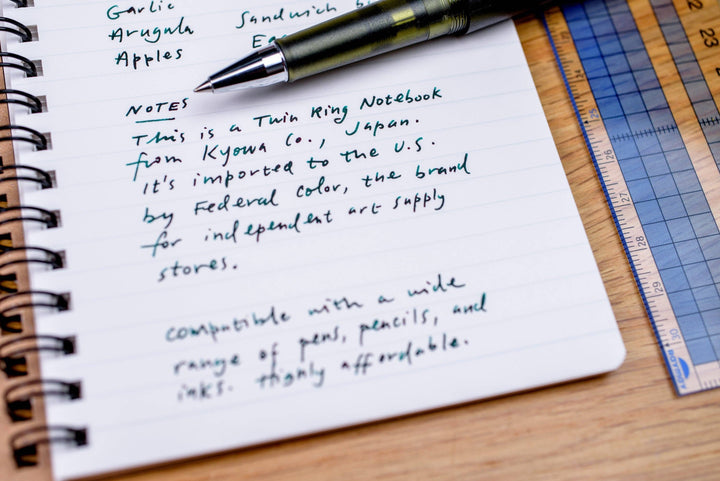 Garlic
Sandwich
Arugula
Apples
NOTES
This is a Twin Ring Notebook
from Kyowa Co., Japan.
It's imported to the U.S.
by Federal Color, the brand
for independent art supply
stores.
compatible with a wide
range of pens, pencils, and
inks. Highly affordable.
22
23
25
26
27
28
29
30